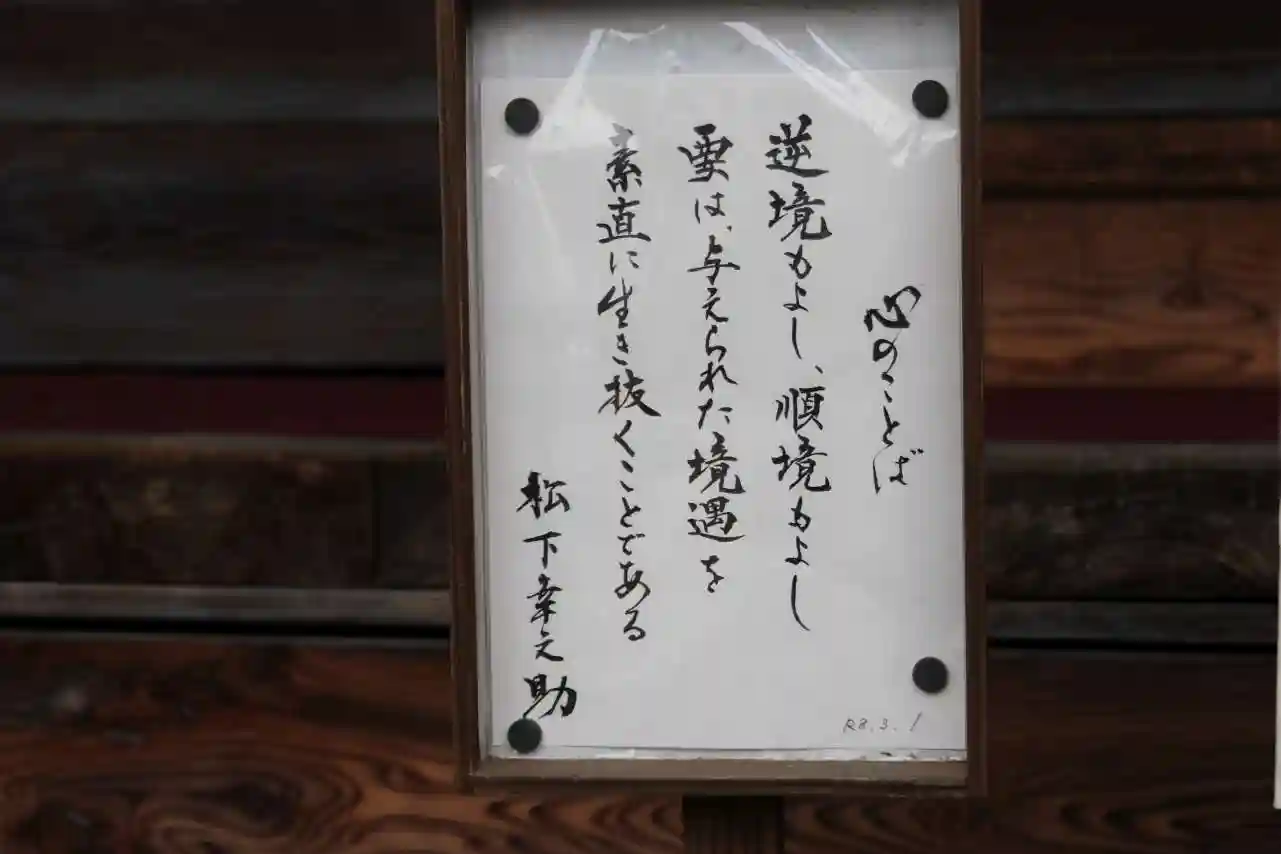 心のことば
逆境もよし、順境もよし
要は、与えられた境遇を
素直に生き抜くことである
松下幸之助
R8.3.1